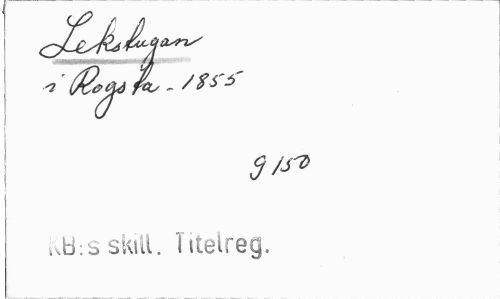 Lekstugan
i Rogsta - 1855
g 150
KB:s skill. Titelreg.